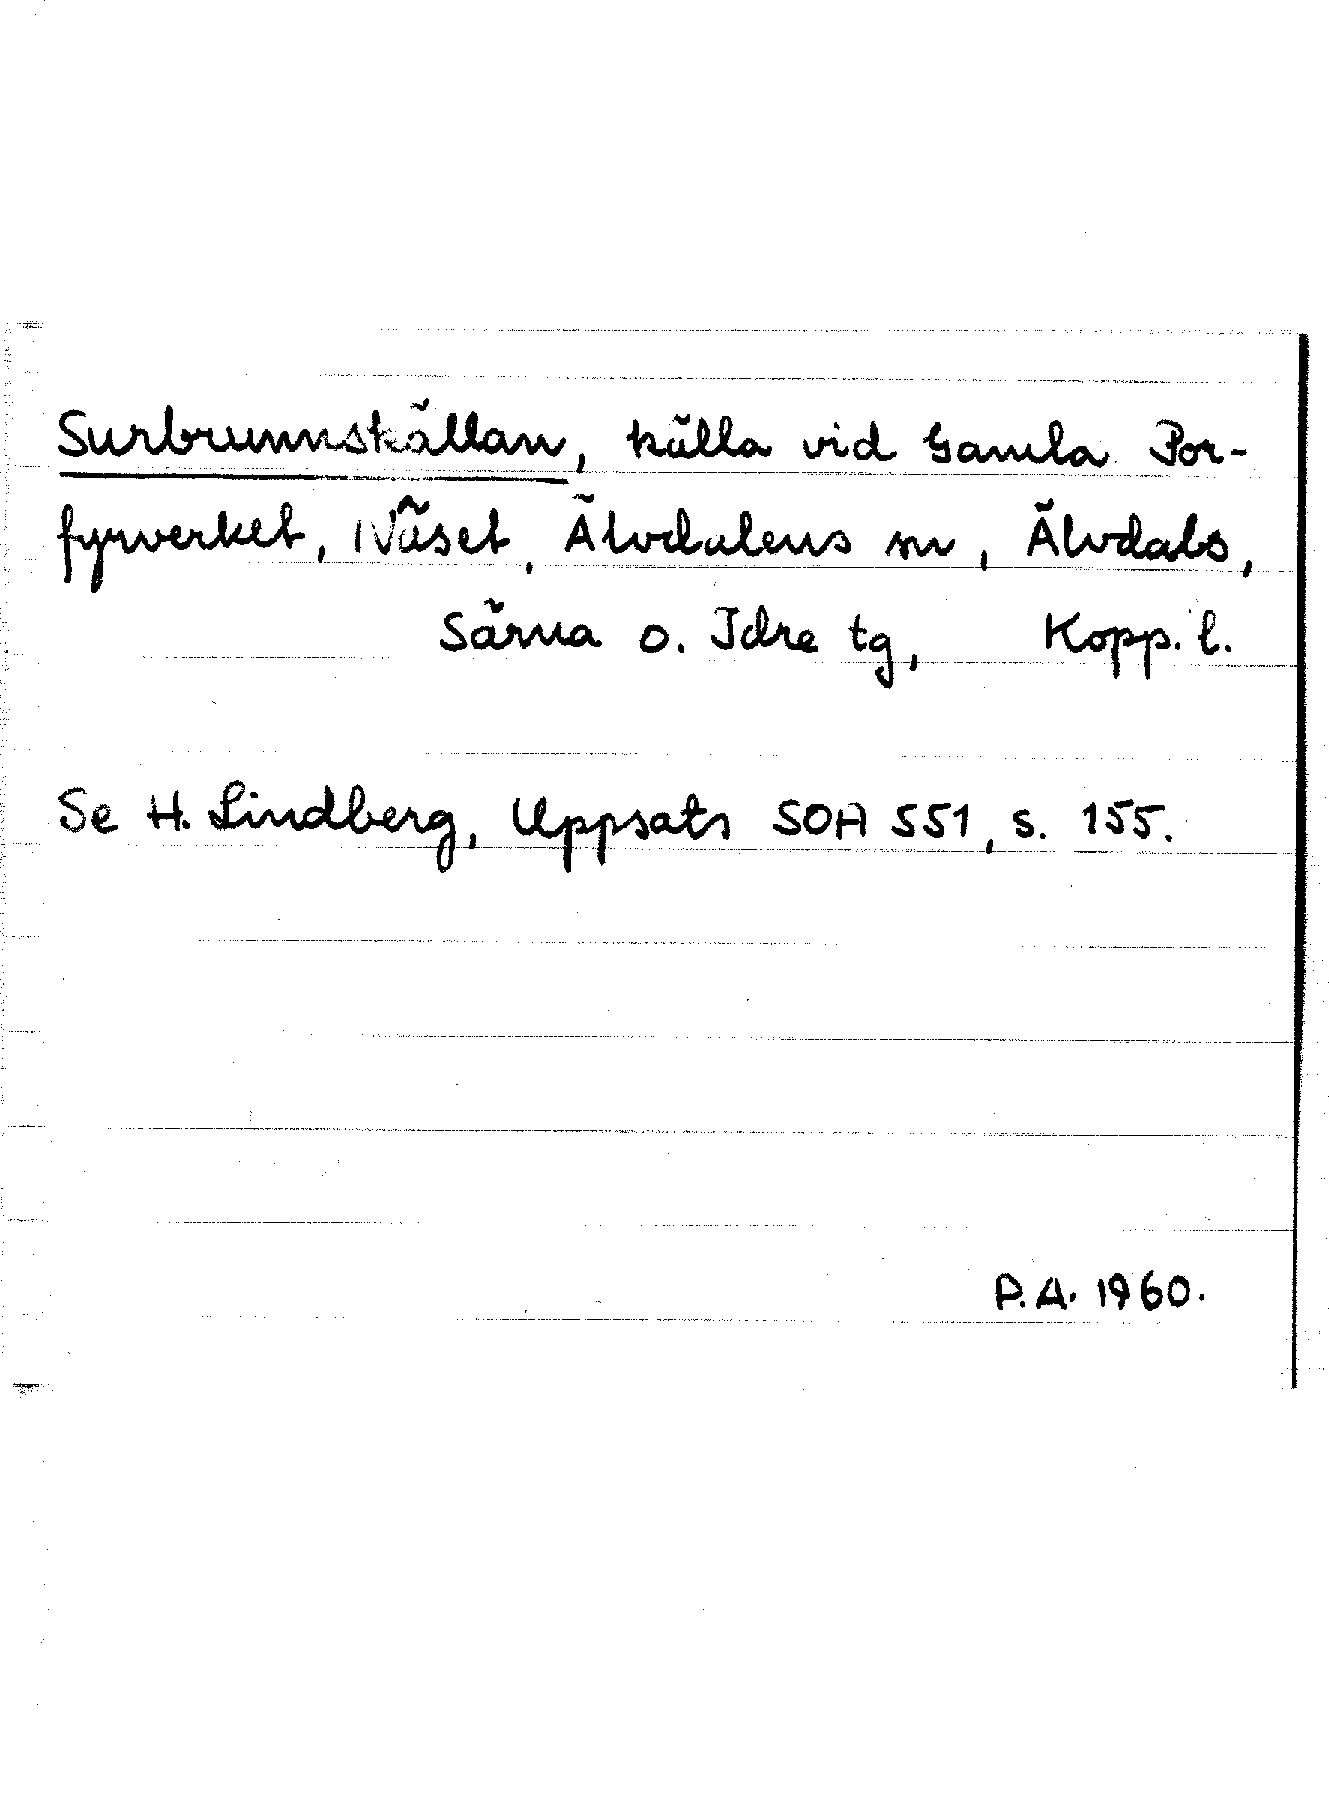 Surbrunnskällan, källa vid Gamla Por-
fyrverket, Näset, Älvdalens sn, Älvdals,
Särna o. Idre tg, Kopp. l.
Se H. Lindberg, Uppsats SOA 551, s. 155.
P.A. 1960.